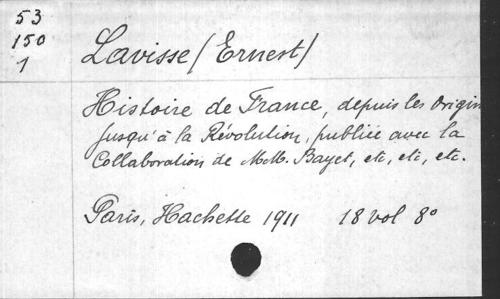 53
150
1
Lavisse (Ernest)
Histoire de France, depuis les Origin
jusqu'à la Révolution, publiée avec la
Collaboration de MM. Bayet, etc, etc, etc.
Paris, Hachette 1911 18 vol 8°